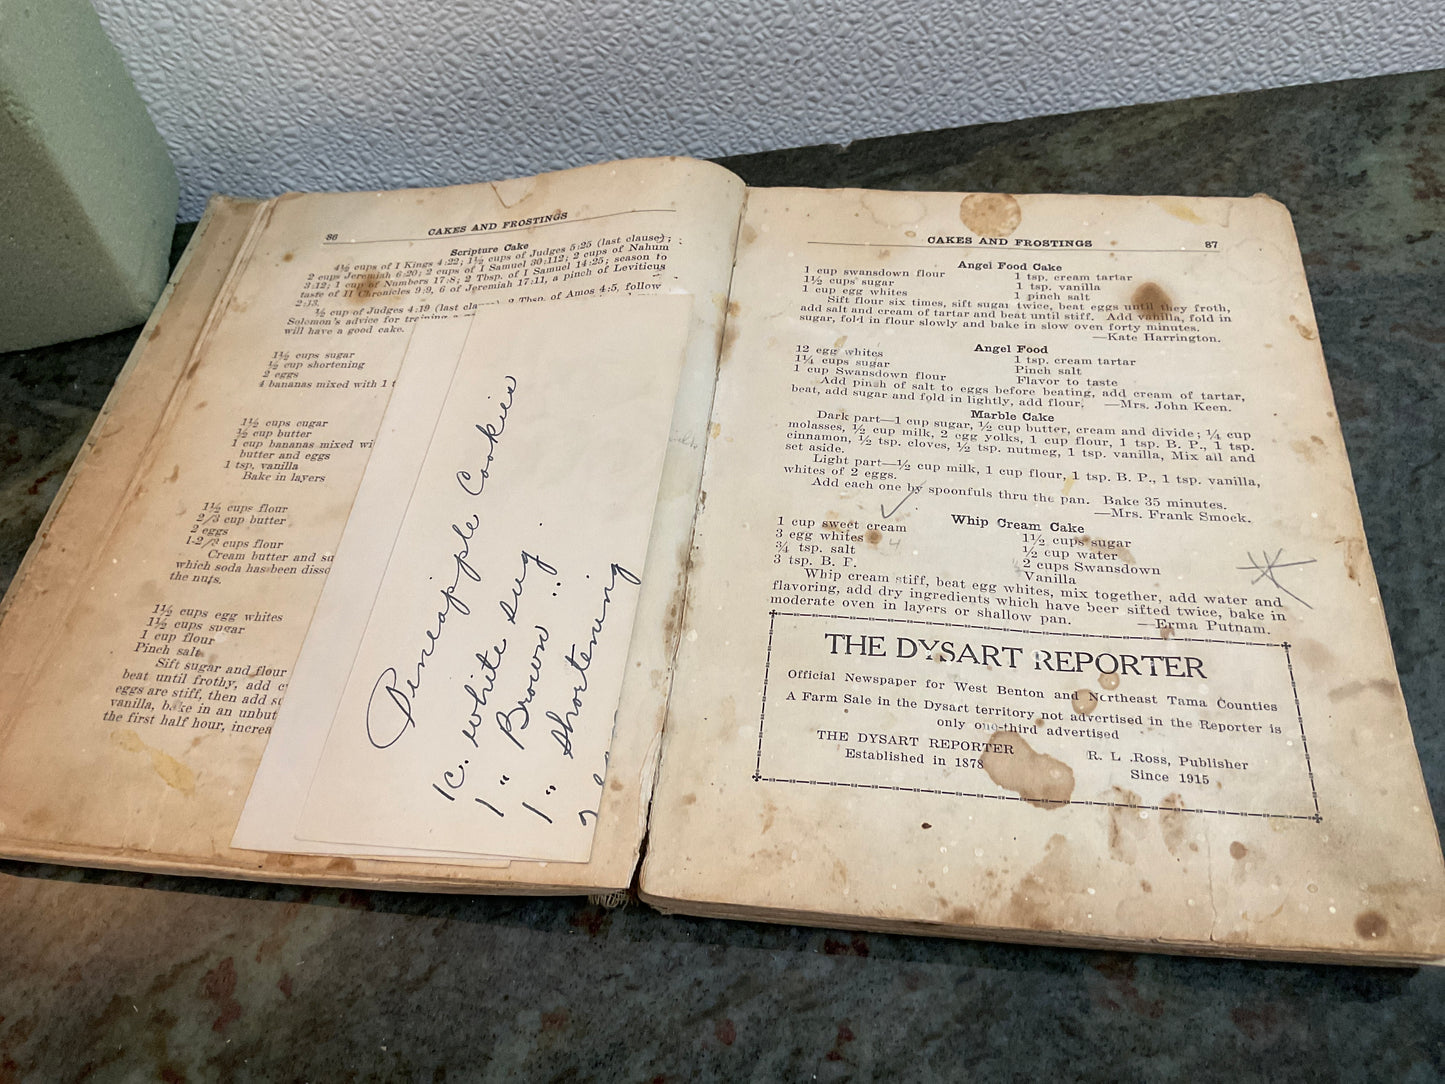 86
CAKES AND FROSTINGS
Scripture Cake
4½ cups of I Kings 4:22; 1½ cups of Judges 5:25 (last clause);
2 cups Jeremiah 6:20; 2 cups of I Samuel 30:112; 2 cups of Nahum
3:12; 1 cup of Numbers 17:8; 2 Tbsp. of I Samuel 14:25; season to
taste of II Chronicles 9:9, 6 of Jeremiah 17:11, a pinch of Leviticus
2:13.
½ cup of Judges 4:19 (last 2 Tbsp. of Amos 4:5, follow
Solomon's advice for
will have a good cake.
1½ cups sugar
½ cup shortening
2 eggs
4 bananas mixed with 1 t
1½ cups cugar
½ cup butter
1 cup bananas mixed wi
butter and eggs
1 tsp. vanilla
Bake in layers
1½ cups flour
2/3 cup butter
2 eggs
1-2/3 cups flour
Cream butter and su
which soda has been disso
the nuts.
1½ cups egg whites
1½ cups sugar
1 cup flour
Pinch salt
Sift sugar and flour
beat until frothy, add
eggs are stiff, then add
vanilla, bake in an unbut
the first half hour, increa
Peneapple Cookies
1c. white sug.
1 " Brown "
1 " shortening
87
CAKES AND FROSTINGS
Angel Food Cake
1 cup swansdown flour 1 tsp. cream tartar
1½ cups sugar 1 tsp. vanilla
1 cup egg whites 1 pinch salt
Sift flour six times, sift sugar twice, beat eggs until they froth,
add salt and cream of tartar and beat until stiff. Add vanilla, fold in
sugar, fold in flour slowly and bake in slow oven forty minutes.
—Kate Harrington.
Angel Food
12 egg whites 1 tsp. cream tartar
1¼ cups sugar Pinch salt
1 cup Swansdown flour Flavor to taste
Add pinch of salt to eggs before beating, add cream of tartar,
beat, add sugar and fold in lightly, add flour. —Mrs. John Keen.
Marble Cake
Dark part—1 cup sugar, ½ cup butter, cream and divide; ¼ cup
molasses, ½ cup milk, 2 egg yolks, 1 cup flour, 1 tsp. B. P., 1 tsp.
cinnamon, ½ tsp. cloves, ½ tsp. nutmeg, 1 tsp. vanilla, Mix all and
set aside.
Light part—½ cup milk, 1 cup flour, 1 tsp. B. P., 1 tsp. vanilla,
whites of 2 eggs.
Add each one by spoonfuls thru the pan. Bake 35 minutes.
—Mrs. Frank Smock.
Whip Cream Cake
1 cup sweet cream 1½ cups sugar
3 egg whites 4 ½ cup water
¾ tsp. salt 2 cups Swansdown
3 tsp. B. F. Vanilla
Whip cream stiff, beat egg whites, mix together, add water and
flavoring, add dry ingredients which have beer sifted twice, bake in
moderate oven in layers or shallow pan. —Erma Putnam.
THE DYSART REPORTER
Official Newspaper for West Benton and Northeast Tama Counties
A Farm Sale in the Dysart territory not advertised in the Reporter is
only one-third advertised
THE DYSART REPORTER R. L. Ross, Publisher
Established in 1878 Since 1915